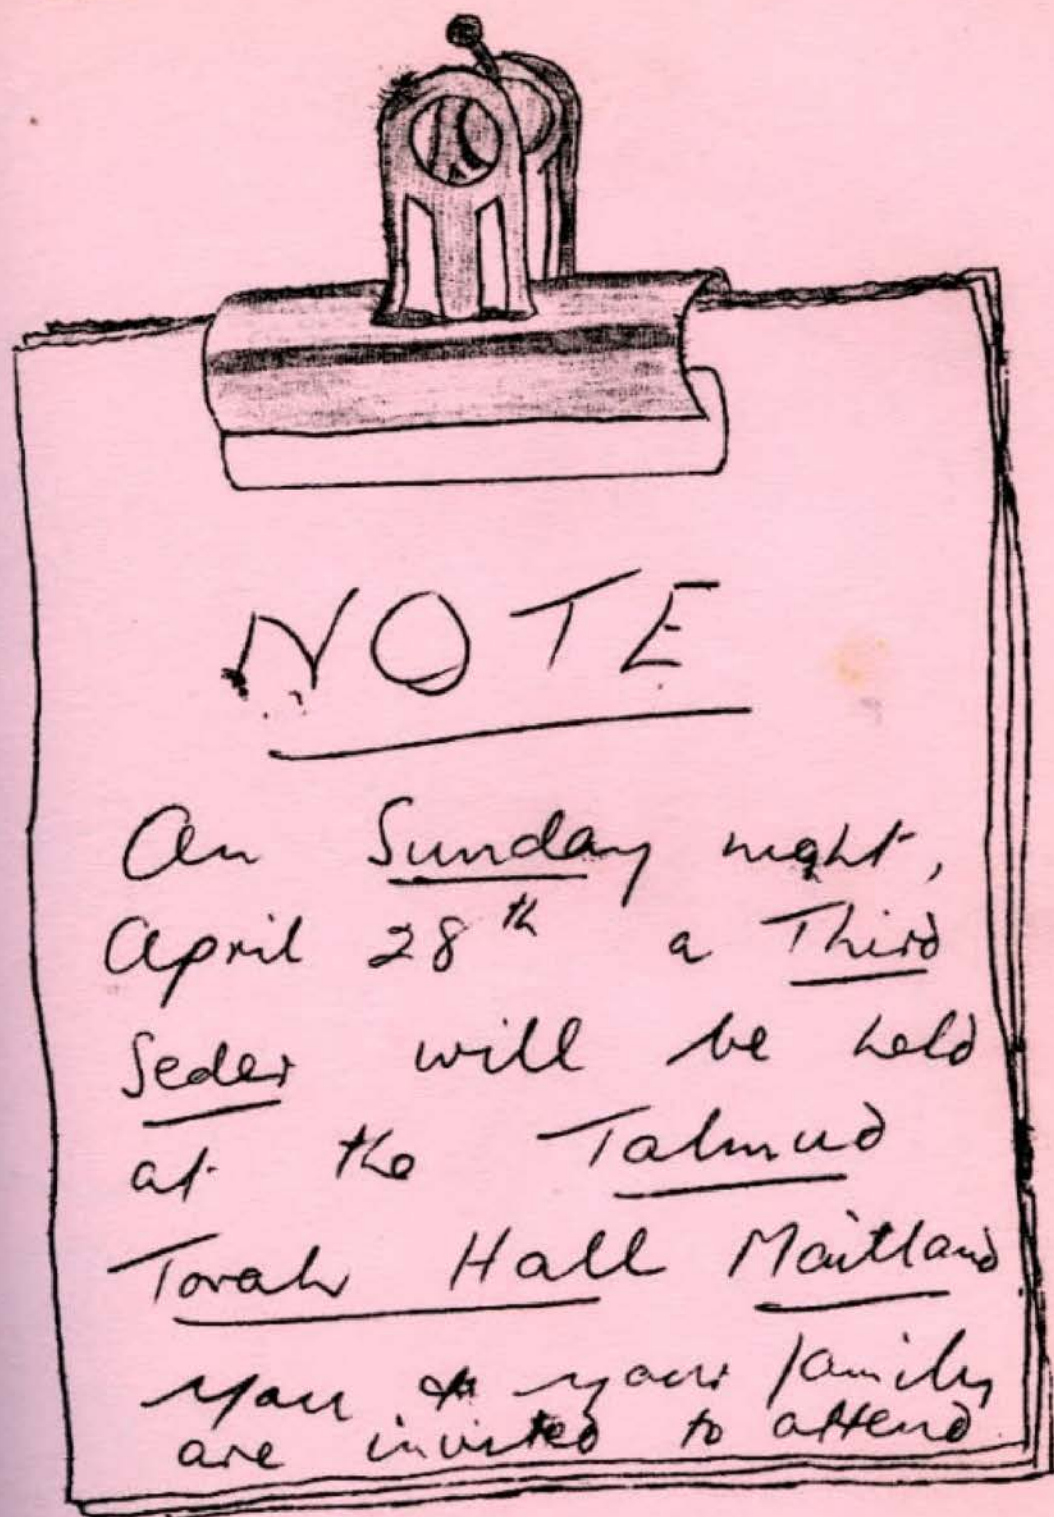 NOTE
On Sunday night,
April 28th a Third
Seder will be held
at the Talmud
Torah Hall Maitland
You & your family
are invited to attend